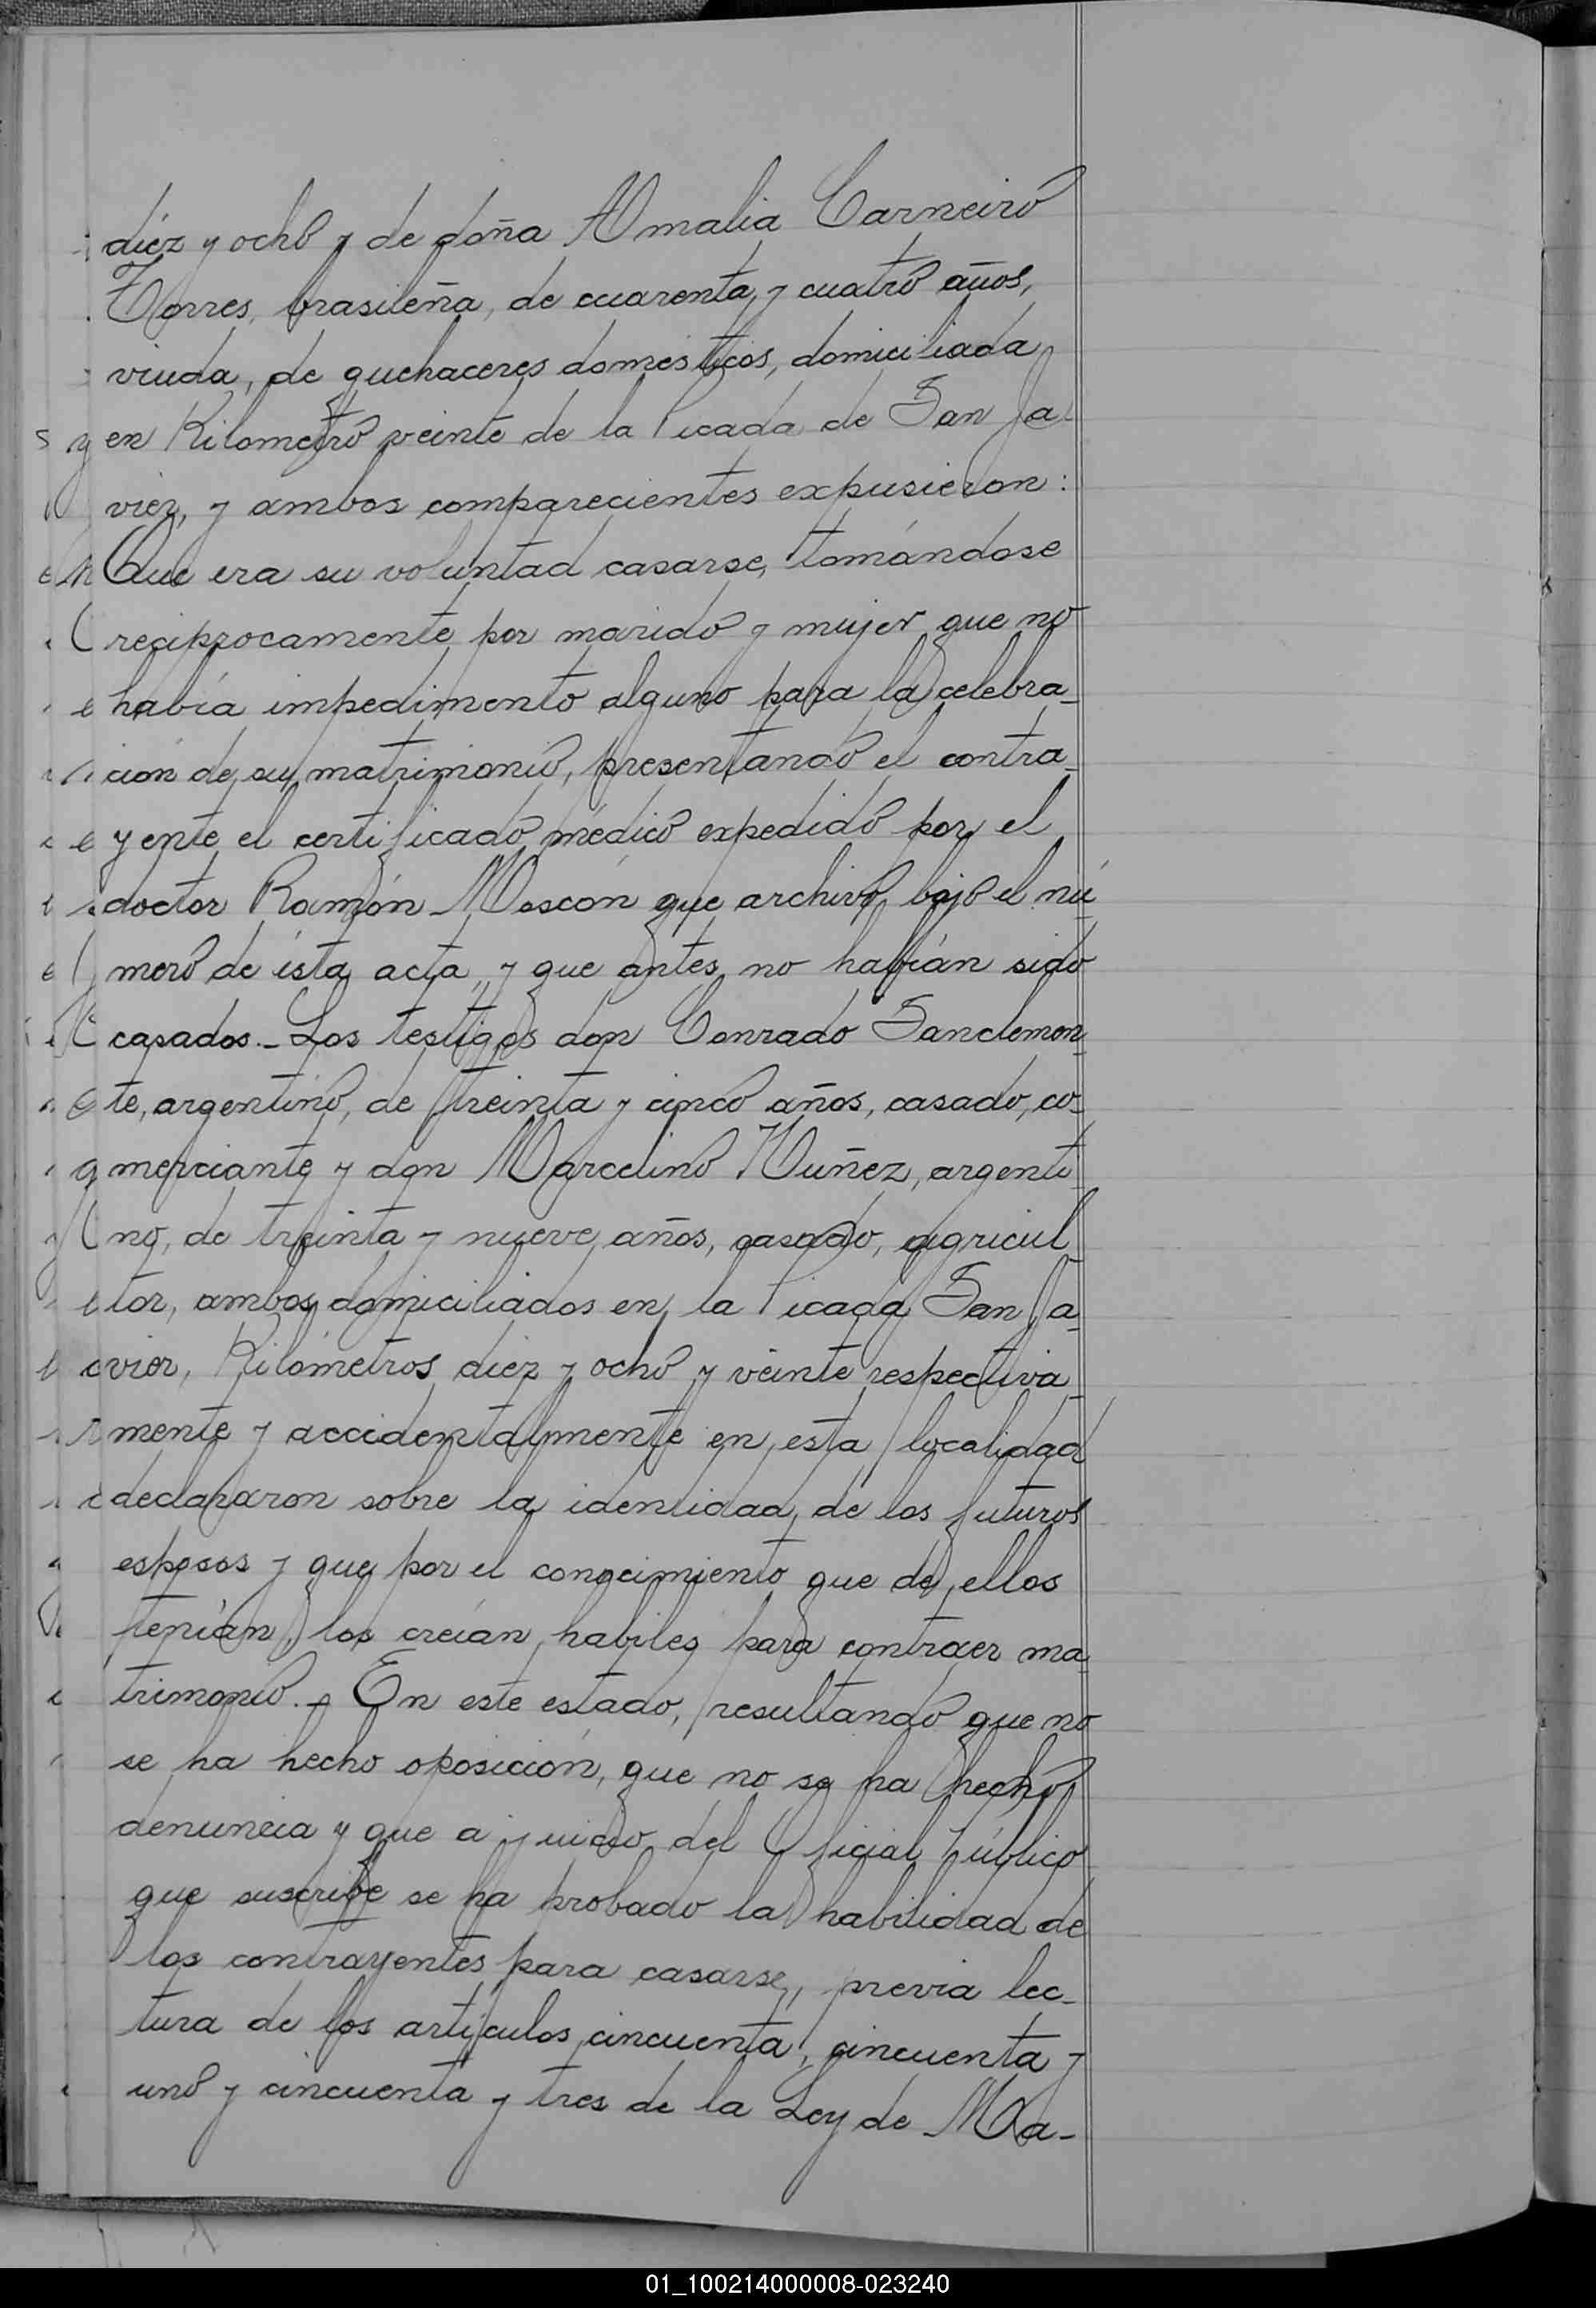 diez y ocho y de doña Amalia Carneiro
Torres, brasileña, de cuarenta y cuatro años,
viuda, de quehaceres domésticos, domiciliada
en Kilometro veinte de la Picada de San Ja-
vier, y ambos comparecientes expusieron:
Que era su voluntad casarse, tomándose
reciprocamente por marido y mujer que no
había impedimento alguno para la celebra-
ción de su matrimonio, presentando el contra-
yente el certificado médico expedido por el
doctor Ramón Moscón que archivo bajo el nú
mero de ésta acta, y que antes no habían sido
casados.- Los testigos don Conrado Sanclemen
te, argentino, de treinta y cinco años, casado, co-
merciante y don Marcelino Nuñez, argenti
no, de treinta y nueve años, casado, agricul
tor, ambos domiciliados en la Picada San Ja
vier, Kilómetros diez y ocho y veinte respectiva
mente y accidentalmente en esta localidad
declararon sobre la identidad de los futuros
esposos y que por el conocimiento que de ellos
tenían, los creían habiles para contraer ma
trimonio.- En este estado, resultando que no
se ha hecho oposición, que no se ha hecho
denuncia y que a juicio del Oficial Público
que suscribe se ha probado la habilidad de
los contrayentes para casarse, previa lec-
tura de los artículos cincuenta, cincuenta y
uno y cincuenta y tres de la Ley de Ma-
01_100214000008-023240